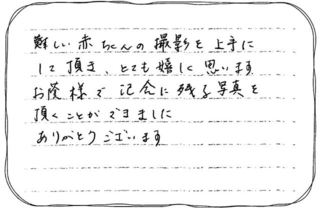 難しい赤ちゃんの撮影を上手に
して頂き、とても嬉しく思います
お陰様で記念に残る写真を
頂くことができました
ありがとうございます